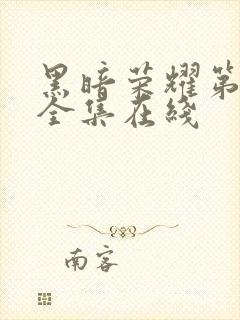 黑暗荣耀第
全集在綫
南客